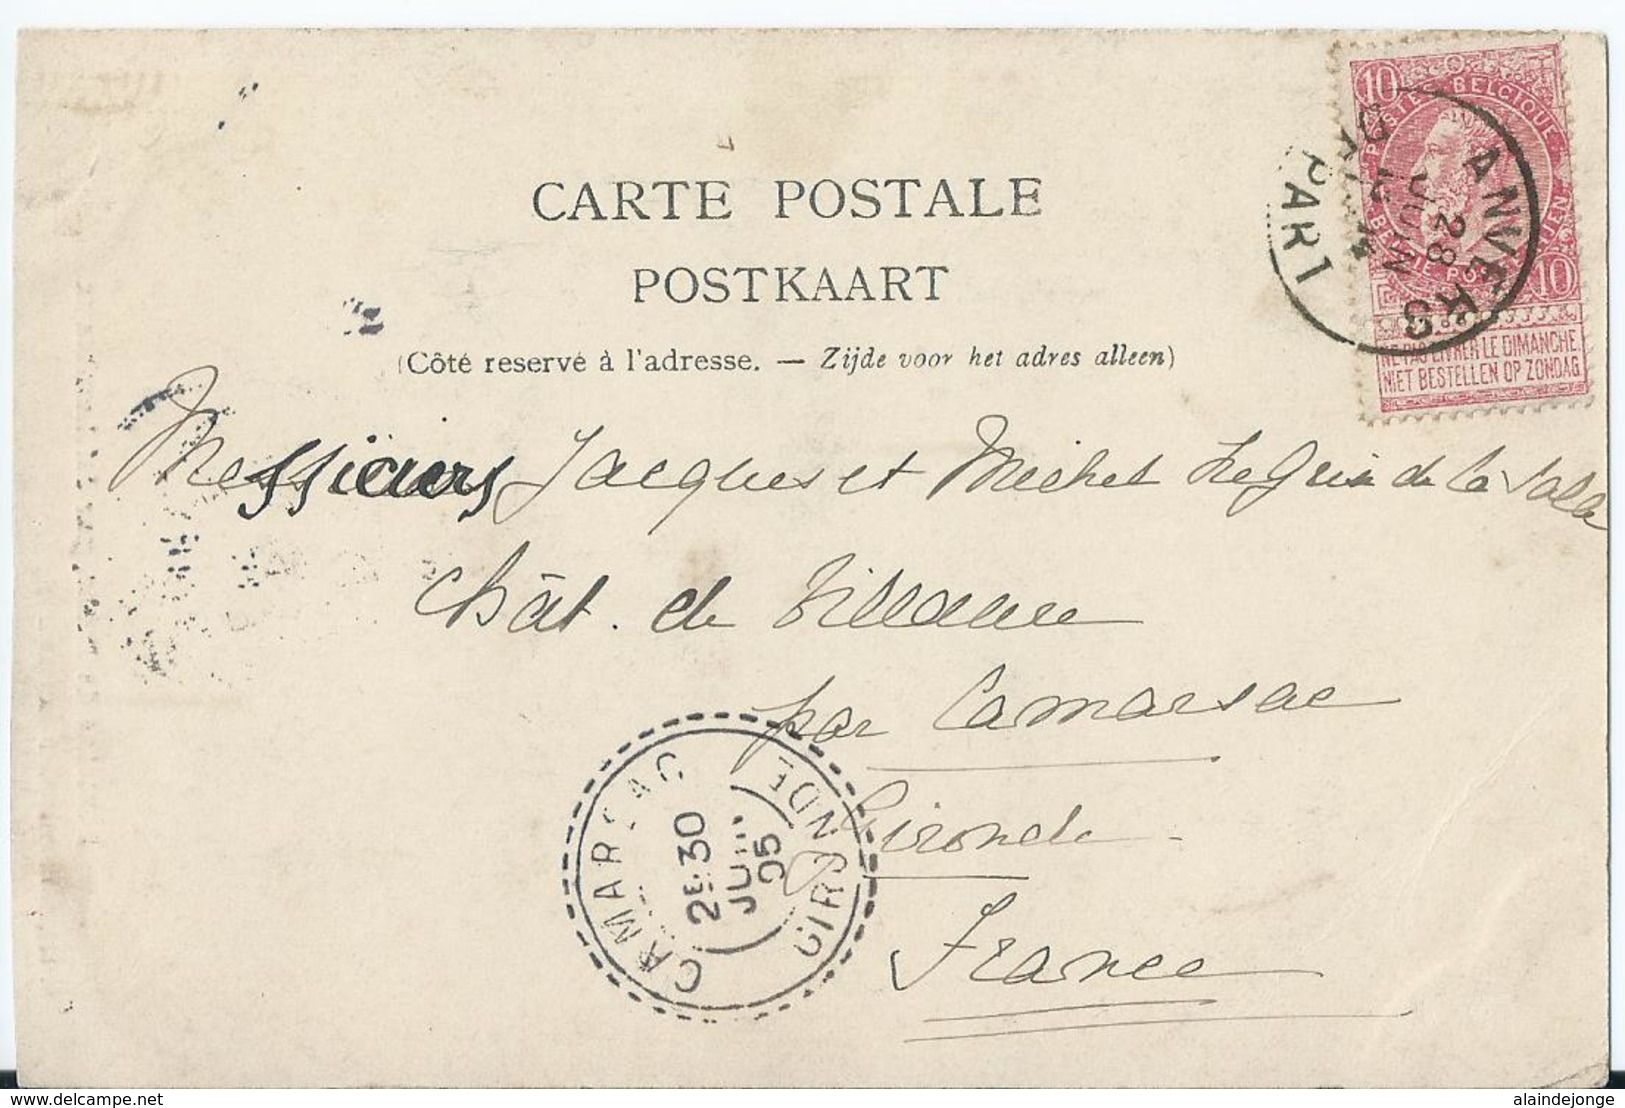 CARTE POSTALE
POSTKAART
(Côté reservé à l'adresse. — Zijde voor het adres alleen)
10 10
POSTES BELGIQUE
BELGIE POSTERIJEN
NE PAS LIVRER LE DIMANCHE
NIET BESTELLEN OP ZONDAG
ANVERS
GARE
JUIN
28
PARI
Messieurs Jacques et Michel Le Grix de la Salle
Chât. de
par Camarsac
Gironde
France
CAMARSAC
GIRONDE
30
JUIN
05
www.delcampe.net
alaindejonge